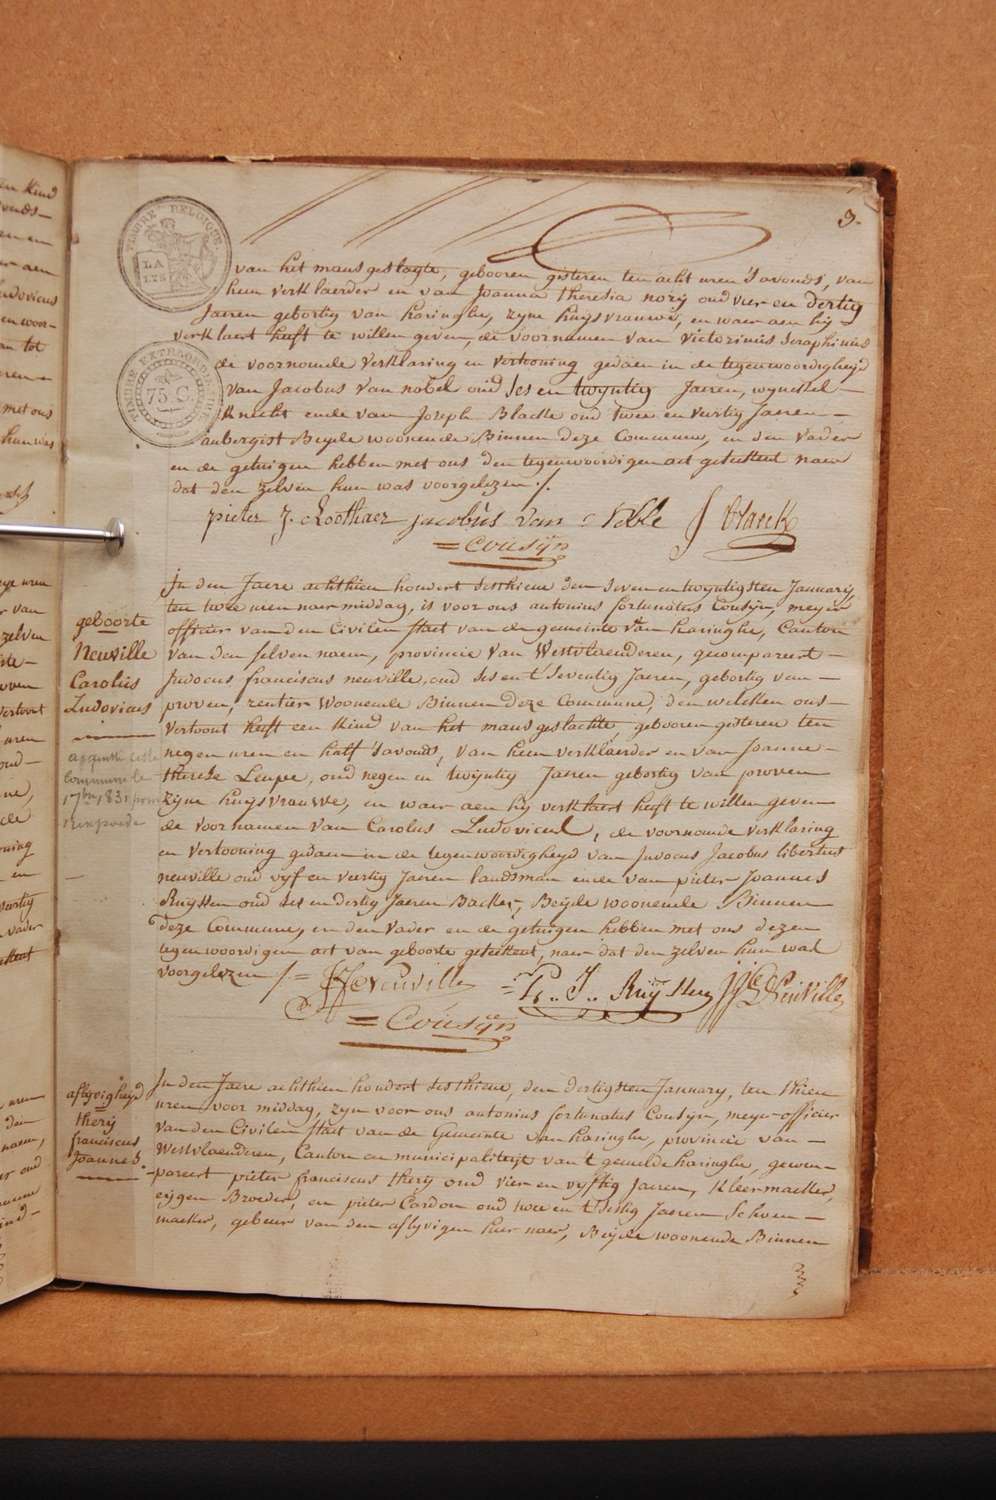 3.
TIMBRE BELGIQUE
LA
LYS
van het mansgeslagte, gebooren gisteren ten acht uren 's avonds, van
hem verklaerder en van Joanna Theresia nozy oud vier en dertig
Jaeren gebortig van haringhe, zyne huysvrauwe, en waer aen hy
verklaert heeft te willen geven, de voornamen van Victorinus Seraphinus
de voornoemde verklaring en vertooning gedaen in de tegenwoordigheyd
van Jacobus van nobel oud ses en twyntig Jaeren,
TIMBRE EXTRAORDINAIRE
75 C.
Knecht ende van Joseph Blacke oud twee en veertig Jaeren —
aubergist Beyde woonende Binnen deze Commune, en den vader
en de getuigen hebben met ons den tegenwoordigen act geteekent naer
dat den zelven hun was voorgelezen ./.
pieter J. Roothaer jacobus van Noble J blaeck
= Cousÿn
In den Jaere achthien hondert sesthiene den seven en twyntigsten January,
ten twee uren naer middag, is voor ons antonius fortunatus Cousyn, meyer
officier van den Civilen staet van de gemeinte van haringhe, Canton
van den selven naem, provincie van Westvlaenderen, gecompareert —
Judocus franciscus neuville, oud ses en t'seventig Jaeren, gebortig van —
proven, rentier woonende Binnen deze Commune, den welcken ons —
vertoont heeft een Kind van het mansgeslachte, gebooren gisteren ten
negen uren en half 's avonds, van hem verklaerder en van Joanne —
therese Leupe, oud negen en twyntig Jaeren gebortig van proven
zyne huysvrauwe, en waer aen hy verklaert heeft te willen geven
de voornamen van Carolus Ludovicus, de voornoemde verklaring
en vertooning gedaen in de tegenwoordigheyd van Judocus Jacobus libertus
neuville oud vyf en veertig Jaeren landsman ende van pieter Joannes
Ruyssen oud ses en dertig Jaeren Backer, Beyde woonende Binnen
deze Commune, en den vader en de getuigen hebben met ons dezen
tegenwoordigen act van geboorte geteekent, naer dat den zelven hun was
voorgelezen ./. =
geboorte
Neuville
Carolus
Ludovicus
JF Neuville = P.. J.. Ruÿssen JJL Neuville
= Cousÿn
aflyvigheyd
therÿ
franciscus
Joannes
In den Jaere achthien hondert sesthiene, den dertigsten January, ten thien
uren voor middag, zyn voor ons antonius fortunatus Cousyn, meyer officier
van den Civilen staet van de Gemeente van haringhe, provincie van —
Westvlaenderen, Canton en municipaliteyt van 't gemelde haringhe, gecom-
pareert pieter franciscus therÿ oud vier en vyftig Jaeren, Kleermaeker,
eygen Broeder, en pieter Cardon oud twee en t'dertig Jaeren Schoen —
maeker, gebeur van den aflyvigen hier naer, Beyde woonende Binnen